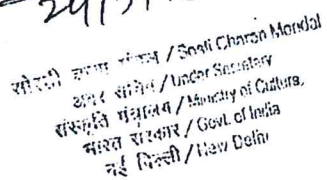 24/3/
सोस्ती चरण मंडल / Sosti Charan Mondal
अवर सचिव / Under Secretary
संस्कृति मंत्रालय / Ministry of Culture,
भारत सरकार / Govt. of India
नई दिल्ली / New Delhi